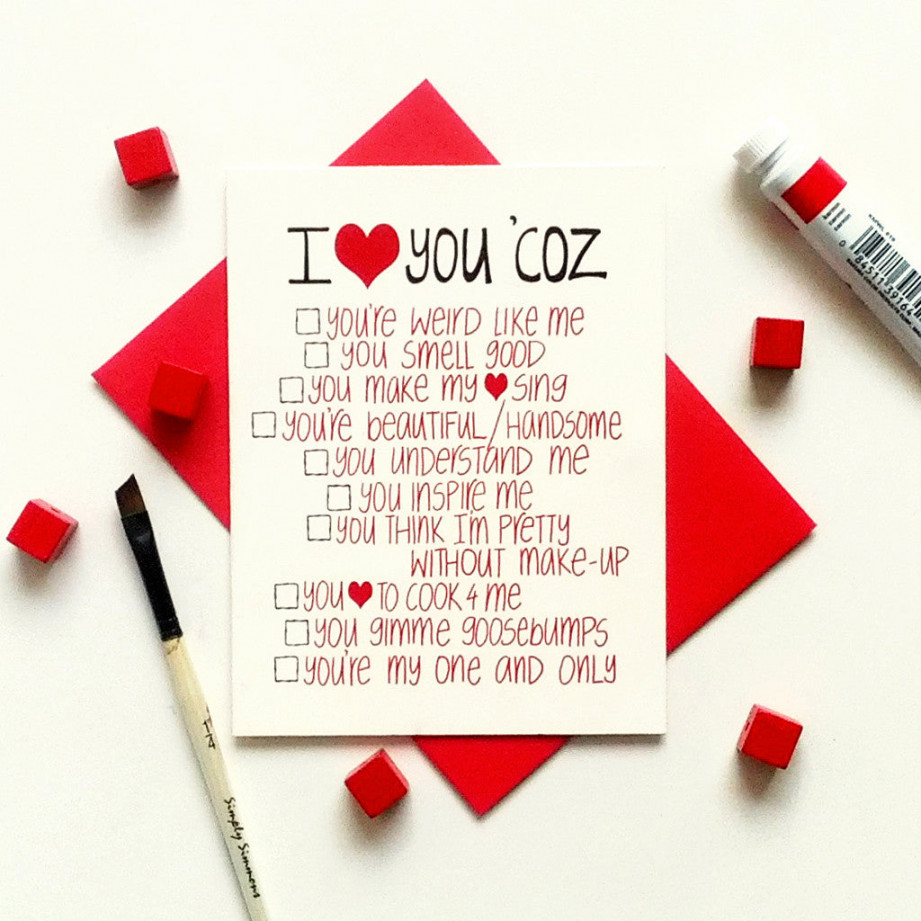 I ♥ you 'coz
☐ you're weird like me
☐ you smell good
☐ you make my ♥ sing
☐ you're beautiful/handsome
☐ you understand me
☐ you inspire me
☐ you think I'm pretty
without make-up
☐ you ♥ to cook 4 me
☐ you gimme goosebumps
☐ you're my one and only
1/4
Simply Simmons